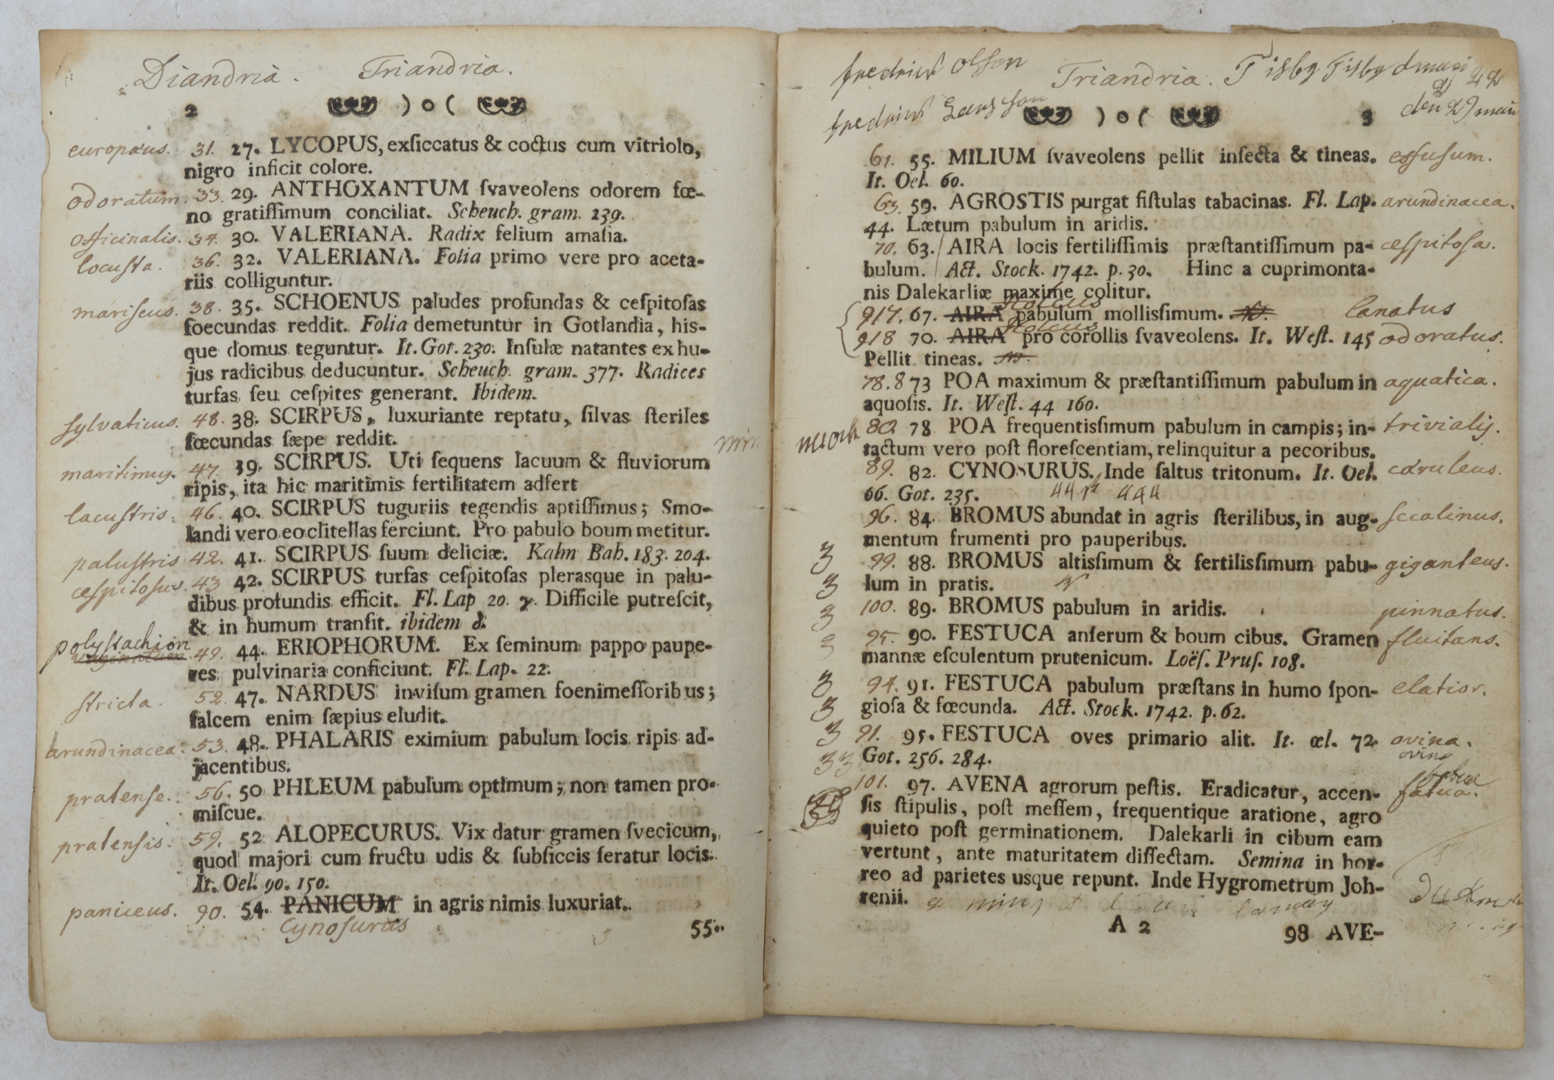 Diandria. Triandria.
2 )o(
europæus. 31. 27. LYCOPUS, exſiccatus & coctus cum vitriolo,
nigro inficit colore.
odoratum. 33. 29. ANTHOXANTUM ſvaveolens odorem fœ-
no gratiſſimum conciliat. Scheuch. gram. 239.
officinalis. 34. 30. VALERIANA. Radix felium amaſia.
locuſta. 36. 32. VALERIANA. Folia primo vere pro aceta-
riis colliguntur.
mariſcus. 38. 35. SCHOENUS paludes profundas & ceſpitoſas
foecundas reddit. Folia demetuntur in Gotlandia, his-
que domus teguntur. It. Got. 230. Inſulæ natantes ex hu-
jus radicibus deducuntur. Scheuch. gram. 377. Radices
turfas ſeu ceſpites generant. Ibidem.
ſylvaticus. 48. 38. SCIRPUS, luxuriante reptatu, ſilvas ſteriles
fœcundas ſæpe reddit.
maritimus. 47. 39. SCIRPUS. Uti ſequens lacuum & fluviorum
ripis, ita hic maritimis fertilitatem adfert
lacuſtris. 46. 40. SCIRPUS tuguriis tegendis aptiſſimus; Smo-
landi vero eo clitellas ferciunt. Pro pabulo boum metitur.
paluſtris 42. 41. SCIRPUS ſuum deliciæ. Kalm Bah. 183. 204.
ceſpitoſus. 43 42. SCIRPUS turfas ceſpitoſas plerasque in palu-
dibus profundis efficit. Fl. Lap 20. γ. Difficile putreſcit,
& in humum tranſit. ibidem δ.
polyſtachion
vaginatum. 49. 44. ERIOPHORUM. Ex ſeminum pappo paupe-
res pulvinaria conficiunt. Fl. Lap. 22.
ſtricta. 52. 47. NARDUS inviſum gramen foenimeſſoribus;
falcem enim ſæpius eludit.
arundinacea. 53. 48. PHALARIS eximium pabulum locis ripis ad-
jacentibus.
pratense. 56. 50 PHLEUM pabulum optimum; non tamen pro-
miſcue.
pratenſis. 59. 52 ALOPECURUS. Vix datur gramen ſvecicum,
quod majori cum fructu udis & ſubſiccis ſeratur locis.
It. Oel. 90. 150.
paniceus. 90. 54. PANICUM in agris nimis luxuriat.
Cynoſurus
55.
fredrick olſson Triandria.
fredrick Larsſon
)o( 3
61. 55. MILIUM ſvaveolens pellit inſecta & tineas. effuſum.
It. Oel. 60.
63. 59. AGROSTIS purgat fiſtulas tabacinas. Fl. Lap. arundinacea.
44. Lætum pabulum in aridis.
70. 63. AIRA locis fertiliſſimis præſtantiſſimum pa- ceſpitoſa.
bulum. Act. Stock. 1742. p. 30. Hinc a cuprimonta-
nis Dalekarliæ maxime colitur.
Holcus
917. 67. AIRA pabulum molliſſimum. lanatus
Holcus
918 70. AIRA pro corollis ſvaveolens. It. Weſt. 145 odoratus.
Pellit tineas.
78.8 73 POA maximum & præſtantiſſimum pabulum in aquatica.
aquoſis. It. Weſt. 44 160.
80. 78 POA frequentiſſimum pabulum in campis; in- trivialis.
tactum vero poſt floreſcentiam, relinquitur a pecoribus.
89. 82. CYNOSURUS. Inde ſaltus tritonum. It. Oel. cæruleus.
66. Got. 235.
96. 84. BROMUS abundat in agris ſterilibus, in aug- ſecalinus.
mentum frumenti pro pauperibus.
3 99. 88. BROMUS altiſſimum & fertiliſſimum pabu- giganteus.
3 lum in pratis.
3 100. 89. BROMUS pabulum in aridis. pinnatus.
3 95. 90. FESTUCA anſerum & boum cibus. Gramen fluitans.
mannæ eſculentum prutenicum. Loëſ. Pruſ. 108.
3 94. 91. FESTUCA pabulum præſtans in humo ſpon- elatior.
3 gioſa & fœcunda. Act. Stock. 1742. p. 62.
3 91. 95. FESTUCA oves primario alit. It. œl. 72. ovina.
33 Got. 256. 284. ovina
101. 97. AVENA agrorum peſtis. Eradicatur, accen- fatua.
ſis ſtipulis, poſt meſſem, frequentique aratione, agro
quieto poſt germinationem. Dalekarli in cibum eam
vertunt, ante maturitatem diſſectam. Semina in hor-
reo ad parietes usque repunt. Inde Hygrometrum Joh-
renii.
A 2 98 AVE-